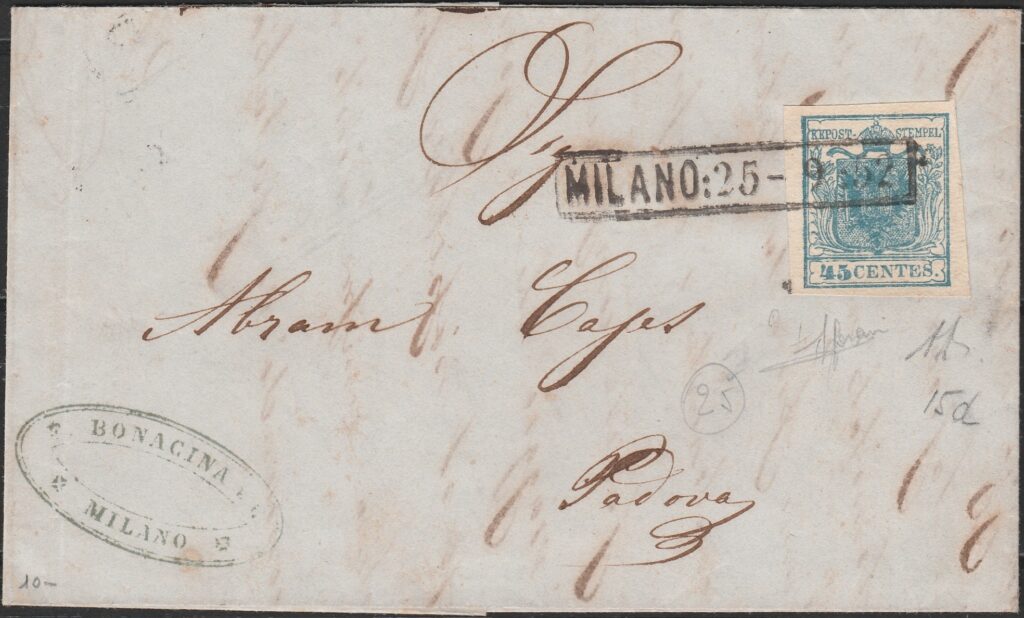 Sig
MILANO:25-9.52
KKPOST-STEMPEL
45 CENTES.
Abram Cases
Padova
25
15d
BONACINA
MILANO
10-